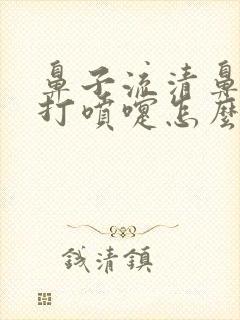 鼻子流清鼻
打噴嚏怎麼
錢清鎮